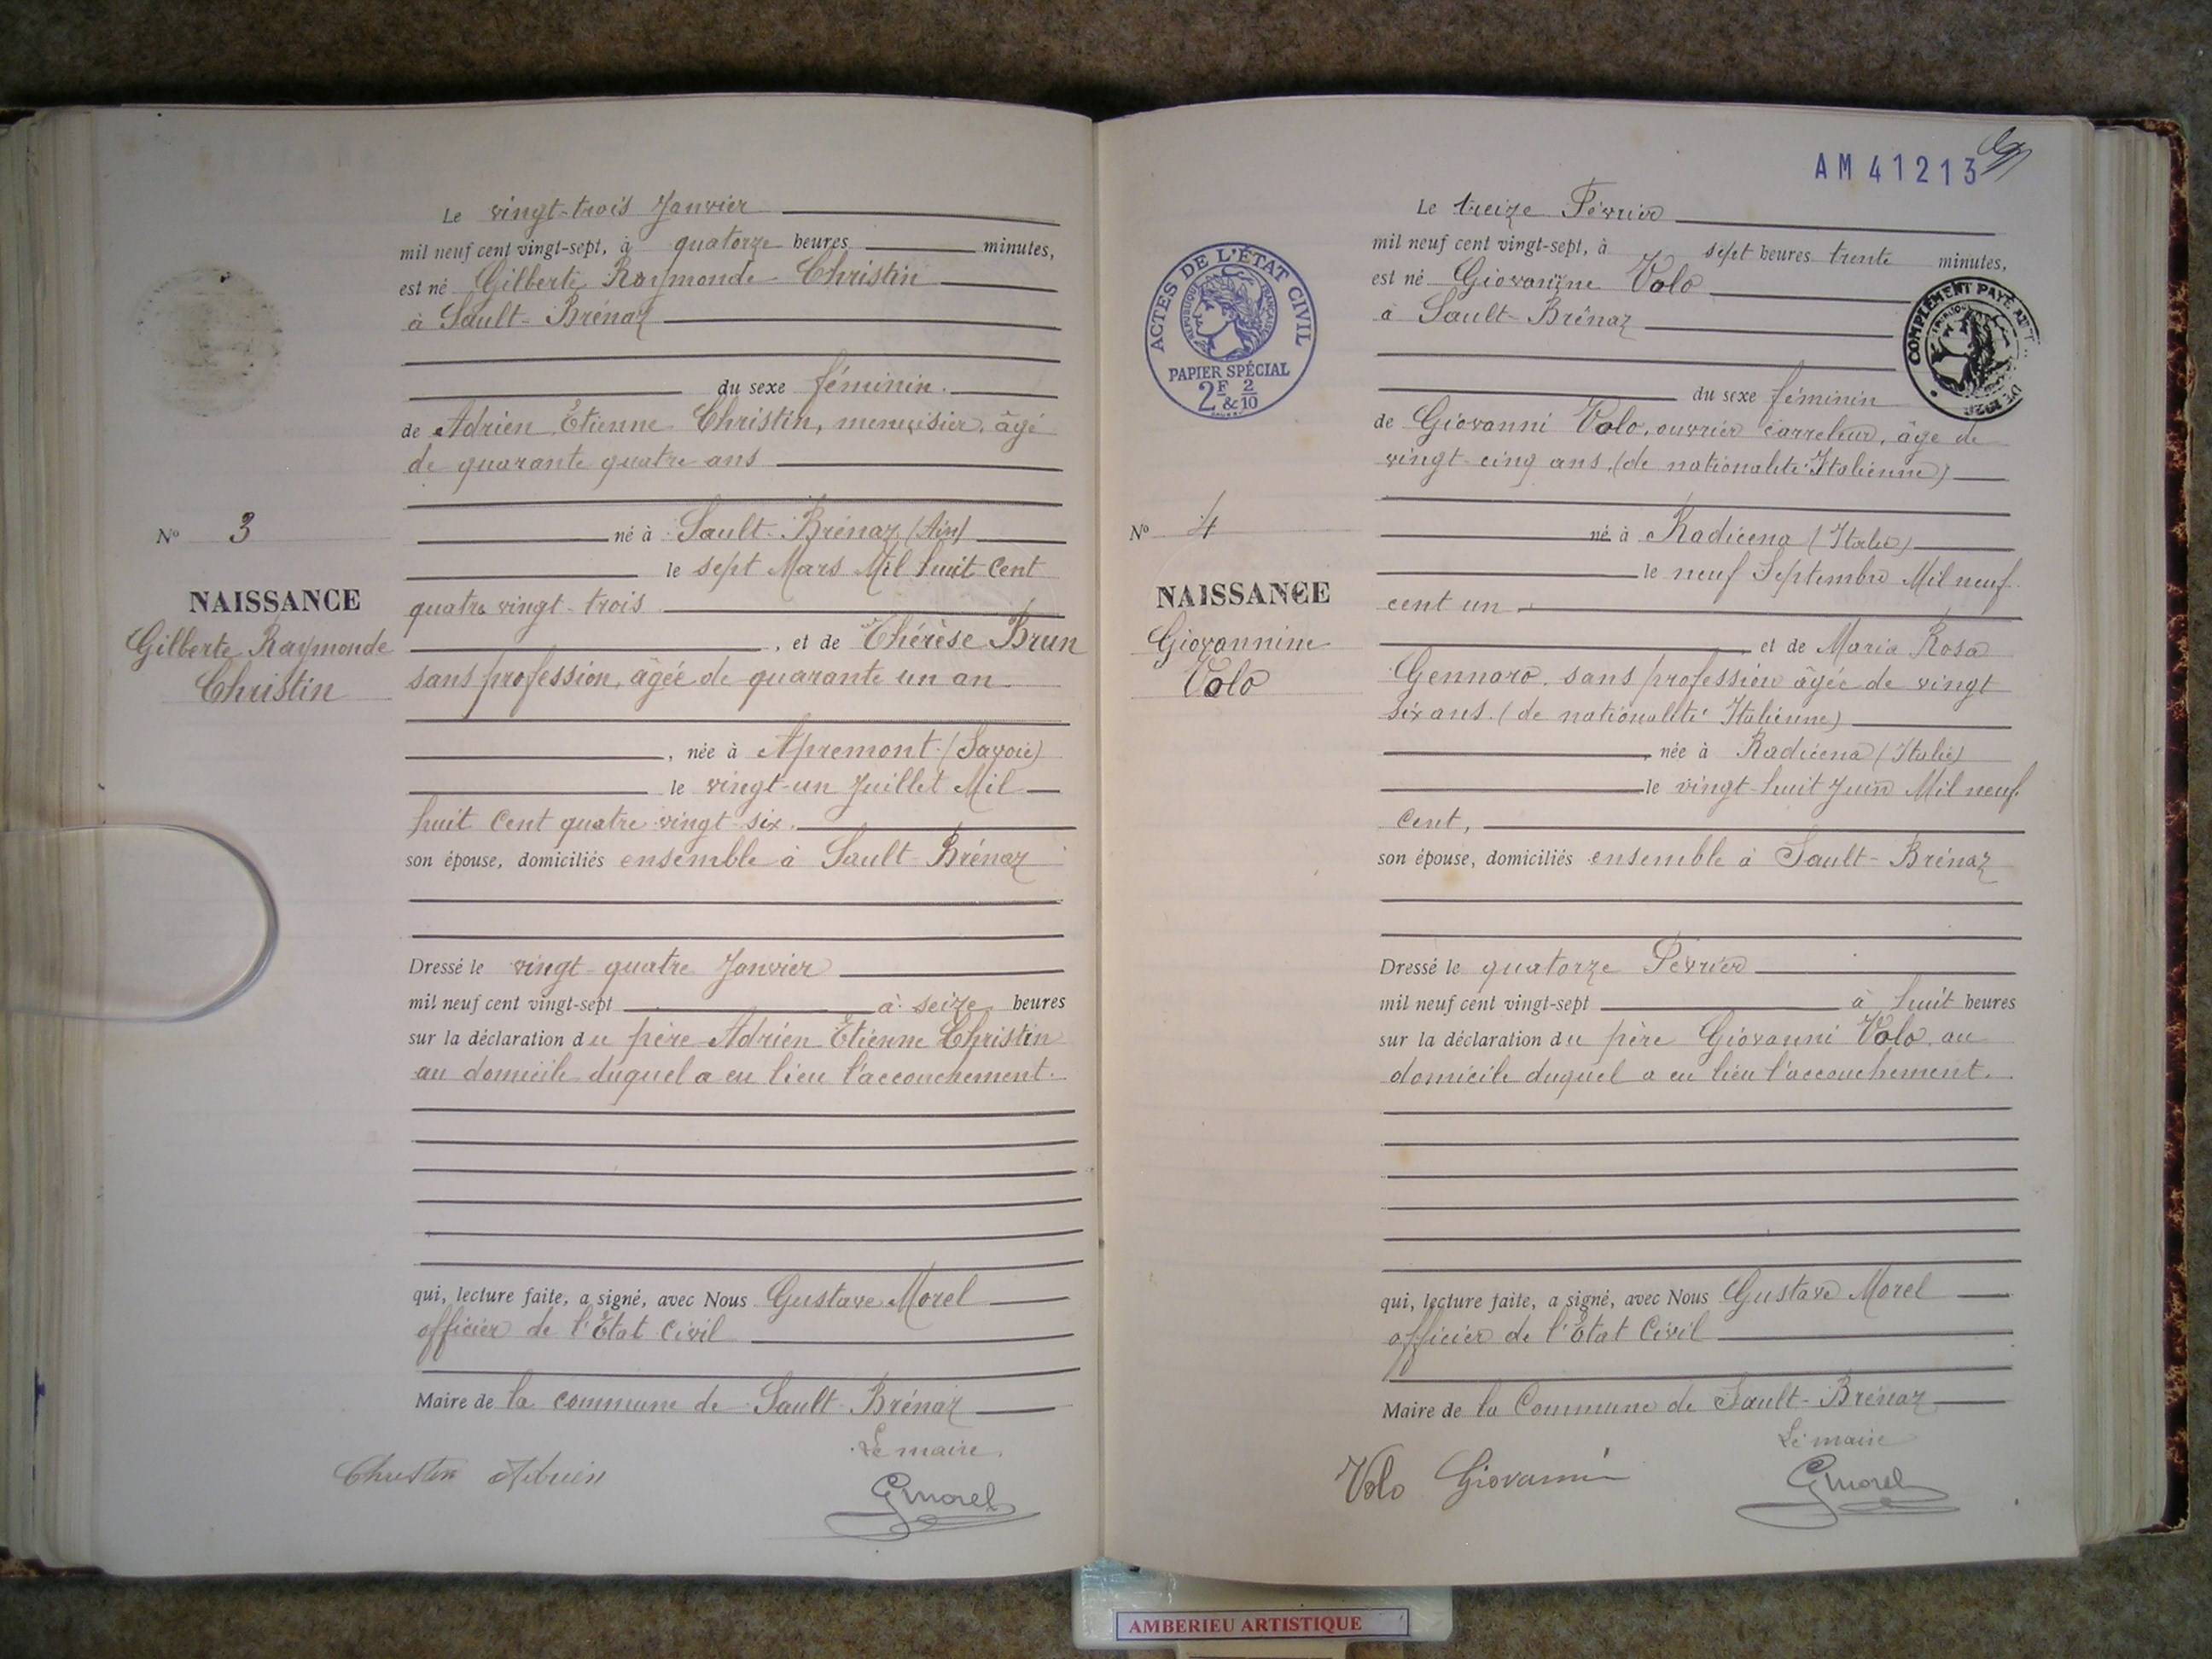 Le vingt-trois Janvier
mil neuf cent vingt-sept, à quatorze heures minutes,
est né Gilberte Raymonde Christin
à Sault-Brénaz
du sexe féminin.
de Adrien Etienne Christin, menuisier, âgé
de quarante quatre ans
né à Sault-Brénaz (Ain)
le sept Mars Mil huit Cent
quatre vingt-trois
, et de Thérèse Brun
sans profession, âgée de quarante un an
, née à Apremont (Savoie)
le vingt-un Juillet Mil
huit Cent quatre vingt-six.
son épouse, domiciliés ensemble à Sault-Brénaz
Dressé le vingt-quatre Janvier
mil neuf cent vingt-sept à seize heures
sur la déclaration du père Adrien Etienne Christin
au domicile duquel a eu lieu l'accouchement.
qui, lecture faite, a signé, avec Nous Gustave Morel
officier de l'Etat Civil
Maire de la commune de Sault-Brénaz
Le maire.
Christin Adrien
GMorel
N° 3
NAISSANCE
Gilberte Raymonde
Christin
AM 41213
ACTES DE L'ÉTAT CIVIL
RÉPUBLIQUE FRANÇAISE
PAPIER SPÉCIAL
2F & 2/10
COMPLÉMENT PAYÉ
N° 4
NAISSANCE
Giovannine
Volo
Le treize Février
mil neuf cent vingt-sept, à sept heures trente minutes,
est né Giovannine Volo
à Sault-Brénaz
du sexe féminin
de Giovanni Volo, ouvrier carreleur, âgé de
vingt-cinq ans, (de nationalité Italienne)
né à Radicena (Italie)
le neuf Septembre Mil neuf
cent un
et de Maria Rosa
Gennaro, sans profession âgée de vingt
six ans. (de nationalité Italienne)
, née à Radicena (Italie)
le vingt-huit Juin Mil neuf
Cent,
son épouse, domiciliés ensemble à Sault-Brénaz
Dressé le quatorze Février
mil neuf cent vingt-sept à huit heures
sur la déclaration du père Giovanni Volo, au
domicile duquel a eu lieu l'accouchement.
qui, lecture faite, a signé, avec Nous Gustave Morel
officier de l'Etat Civil
Maire de la Commune de Sault-Brénaz
Le maire
Volo Giovanni
GMorel
AMBERIEU ARTISTIQUE